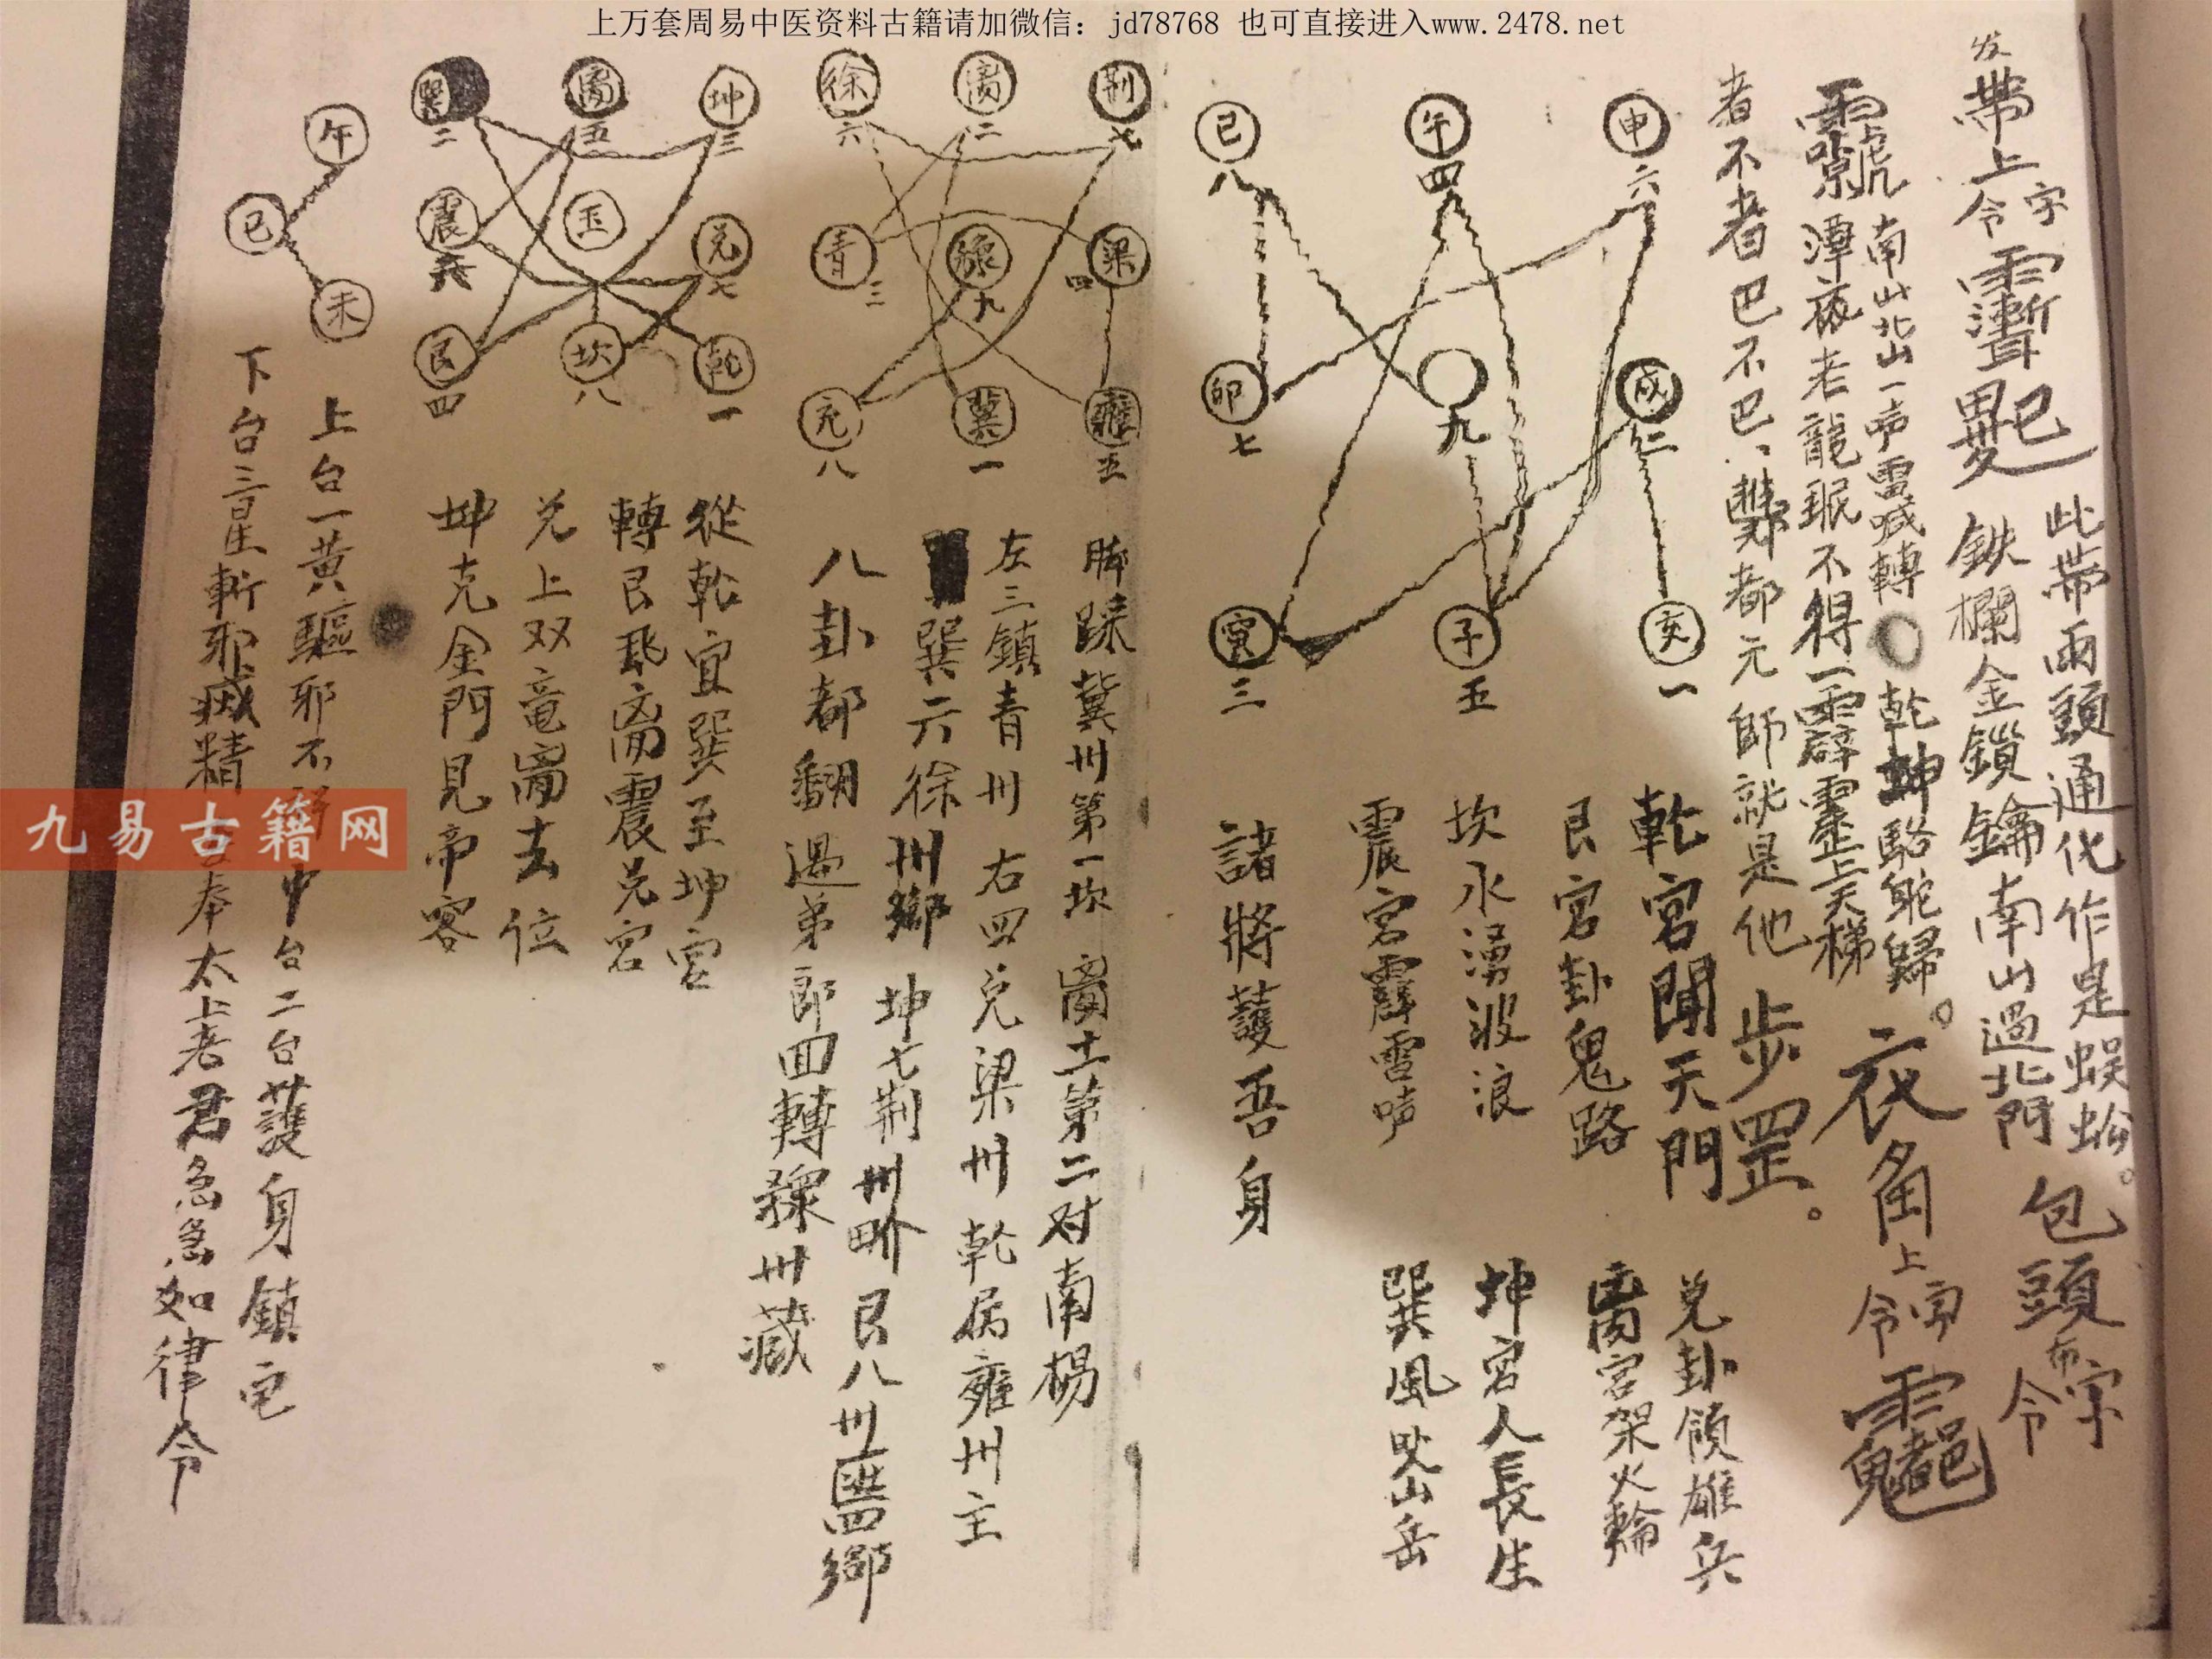 上万套周易中医资料古籍请加微信：jd78768 也可直接进入www.2478.net
此帶兩頭通化作是蜈蚣。包頭布字令
发帶上字令
鉄欄金鎖鑰南山過北門
衣角上字令
南山北山一声雷喊轉乾坤駱駝歸。
潭夜老龍眠不得一霹靂上天梯
者不者巴不巴、酆都元師就是他
步罡。
申六
午四
巳八
戌二
九
卯七
亥一
子五
寅三
乾宮開天門
兌卦領雄兵
艮宮卦鬼路
离宮架火輪
坎水湧波浪
坤宮人長生
震宮霹雷声
巽風吹山岳
諸將護吾身
荆七
离二
徐六
梁四
豫九
青三
雍五
冀一
兗八
脚踩冀州第一坎
离士第二对南楊
左三鎮青州
右四兌梁州
乾居雍州主
巽六徐州鄉
坤七荆州界
艮八州鄉
八卦都翻過弟郎
回轉豫州藏
坤三
离五
巽二
兌七
玉
震六
乾一
坎八
艮四
從乾宜巽至坤宮
轉艮飛离震兌宮
兌上双竜离去位
坤克金門見帝客
午
巳
未
上台一黄驅邪不
中台二台護身鎮宅
下台三星斬邪滅精
奉太上老君急急如律令
九易古籍网